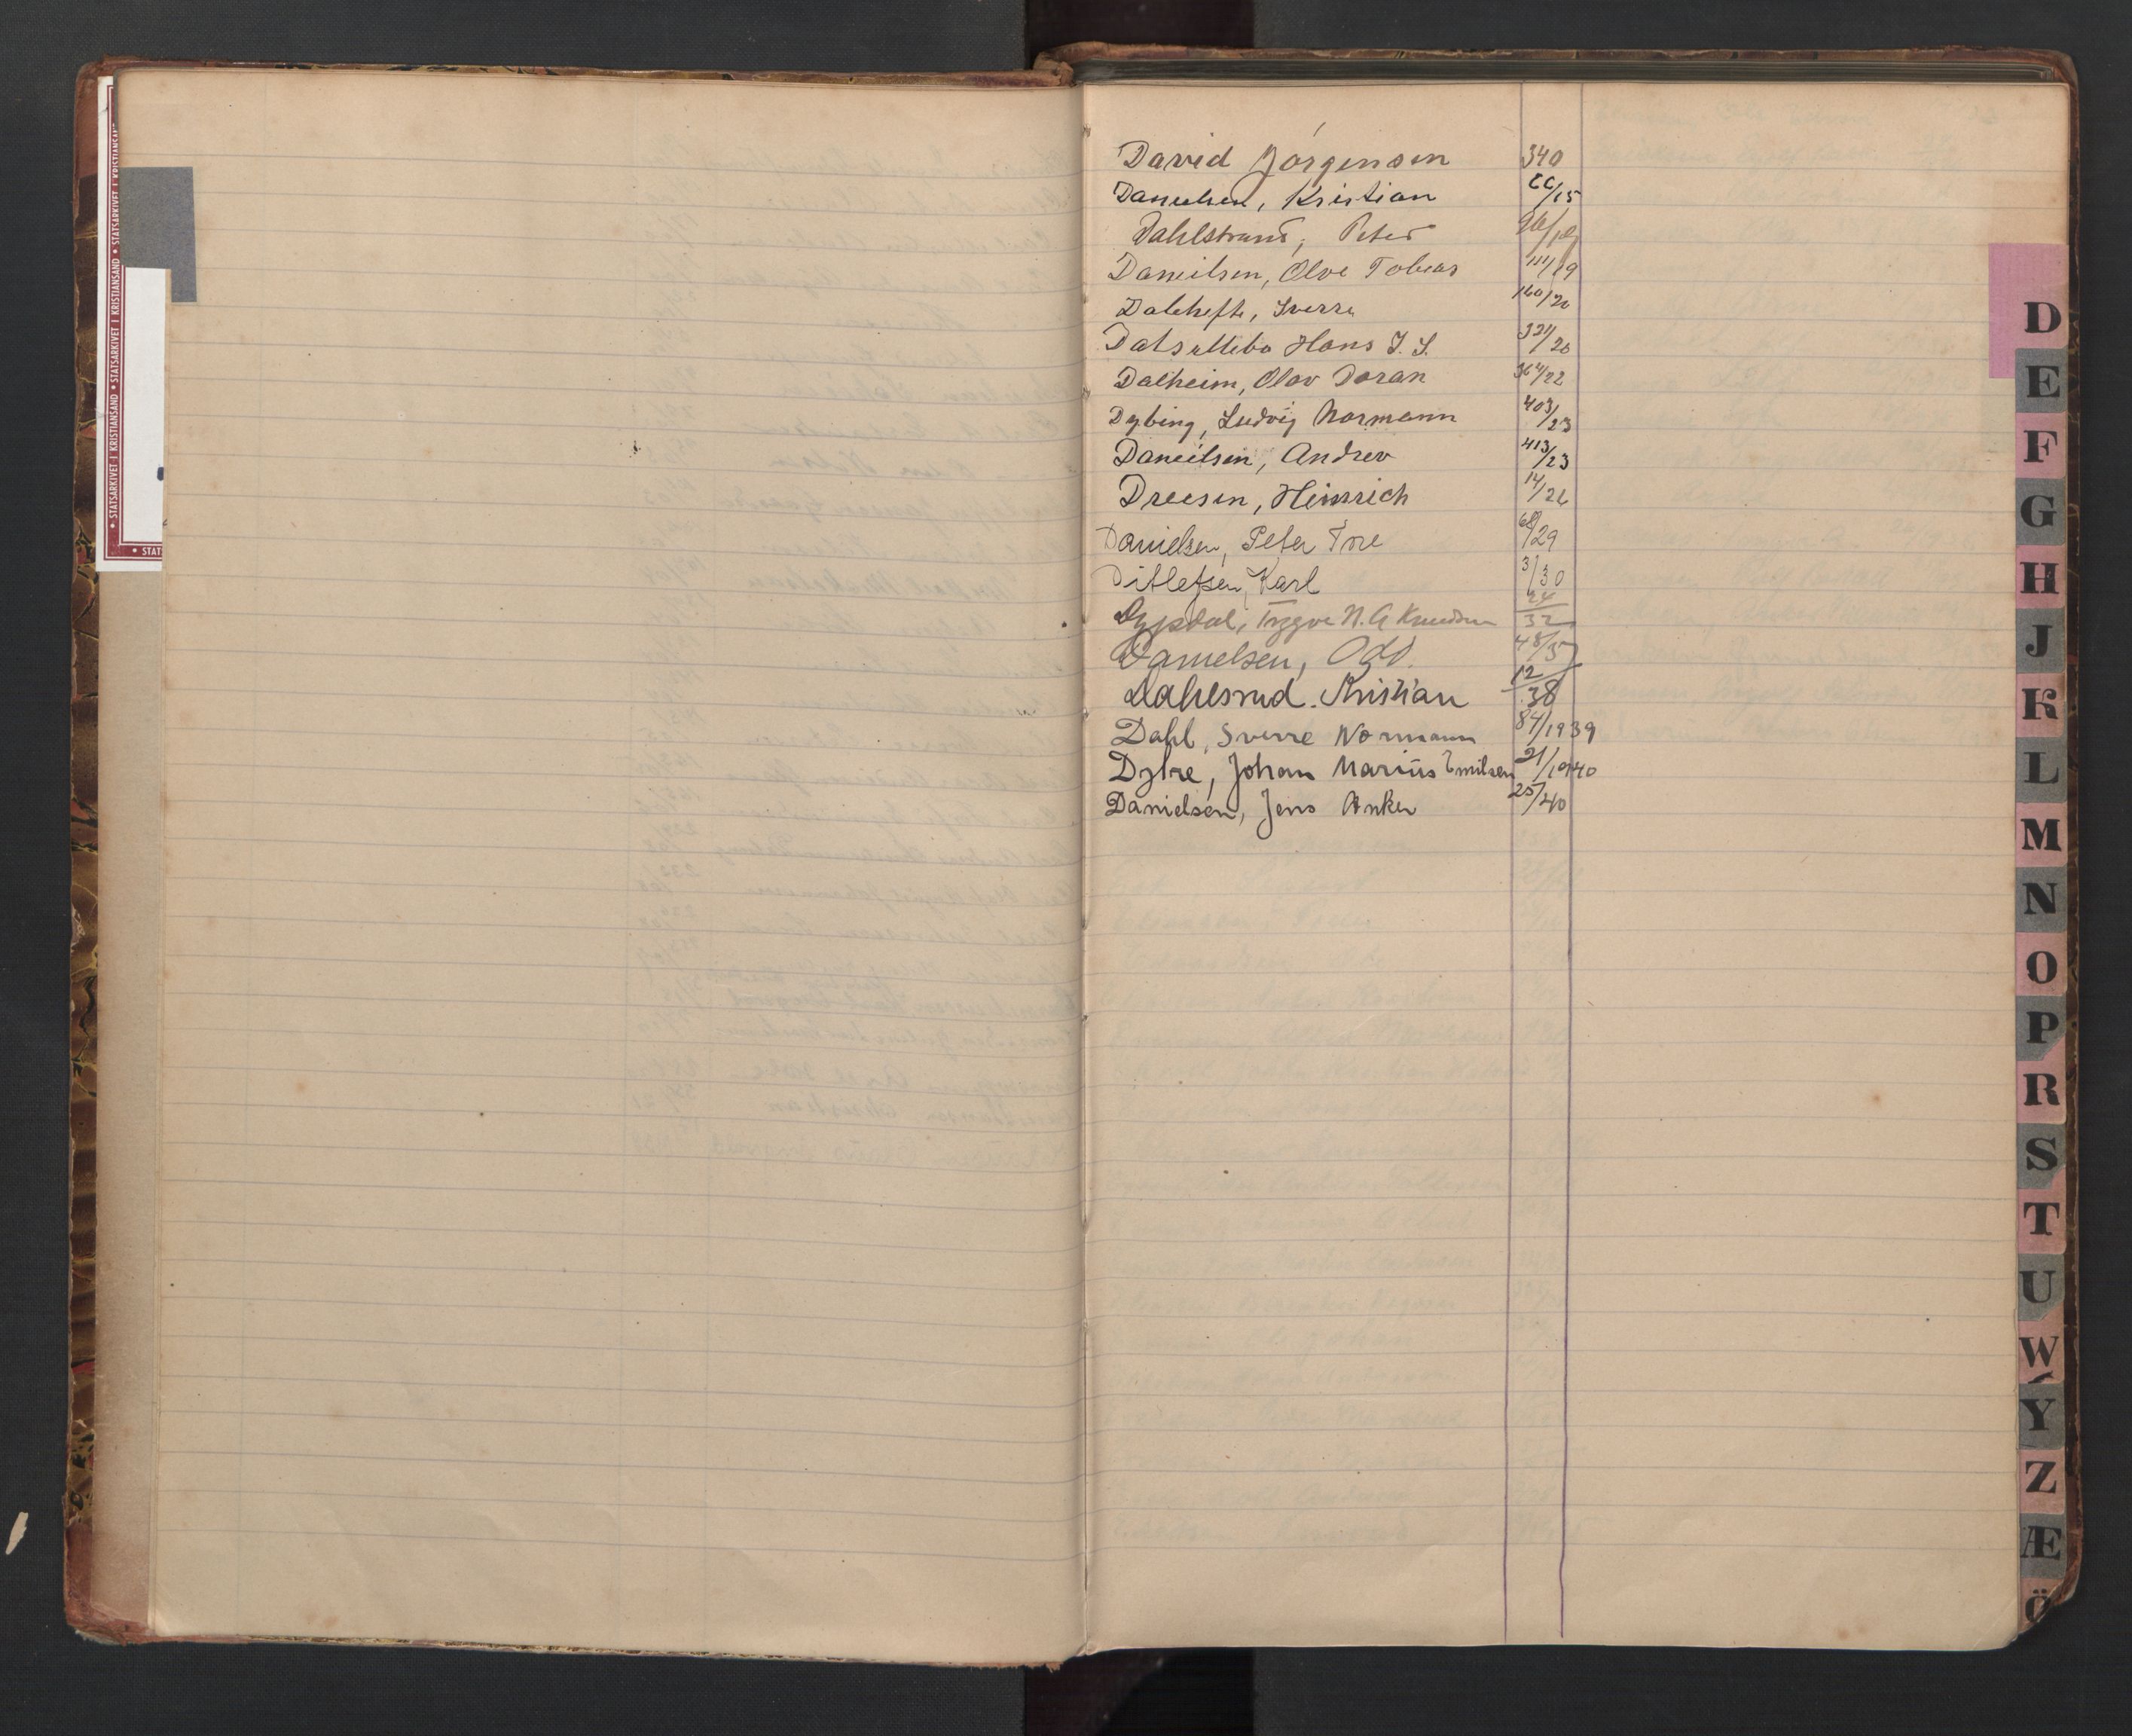 David Jörgensen 340
Danielsen, Kristian 66/15
Dahlstrand, Peter
Danielsen, Olve Tobias 111/19
Dalehefte, Sverre 160/20
Hans J. S. 321/20
Dalheim, Olav Doran 364/22
Dybing, Ludvig Normann 403/23
Danielsen, Andrev 413/23
Dreesen, Heinrich 14/26
Danielsen, Peter Tore 68/29
Ditlefsen, Karl 3/30
Dypdal, Tryggve N. A Knudsen 24/32
Danielsen, Odd. 48/37
Kristian 12/38
Dahl, Sverre Normann 84/1939
Johan Marius Emilsen 21/1940
Danielsen, Jens Anker 25/40
D
E
F
G
H
J
K
L
M
N
O
P
R
S
T
U
W
Y
Z
Æ
Ö
• STATSARKIVET I KRISTIANSAND • STATSARKIVET I KRISTIANSAND • STATSARKIVET I KRISTIANSAND
• STAT